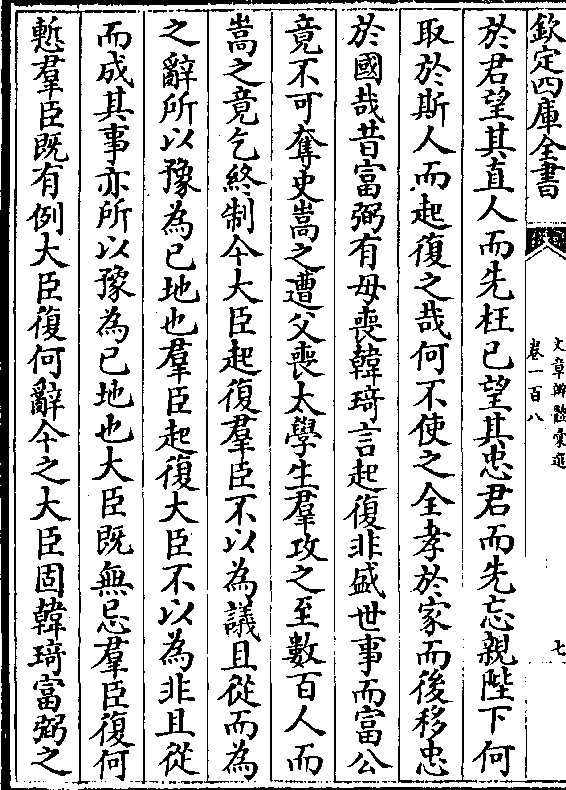 欽定四庫全書
文章辨體彙選
卷一百八
七
於君望其直人而先枉已望其忠君而先忘親陛下何
取於斯人而起復之哉何不使之全孝於家而後移忠
於國哉昔富弼有母喪韓琦言起復非盛世事而富公
竟不可奪史嵩之遭父喪太學生羣攻之至數百人而
嵩之竟乞終制今大臣起復羣臣不以為議且從而為
之辭所以豫為已地也羣臣起復大臣不以為非且從
而成其事亦所以豫為已地也大臣既無忌羣臣復何
慙羣臣既有例大臣復何辭今之大臣固韓琦富弼之